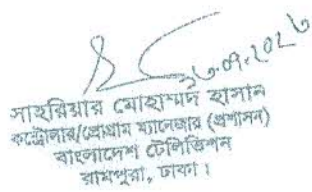 ৩০.০৭.২০২৩
সাহরিয়ার মোহাম্মদ হাসান
কন্ট্রোলার/প্রোগ্রাম ম্যানেজার (প্রশাসন)
বাংলাদেশ টেলিভিশন
রামপুরা, ঢাকা।